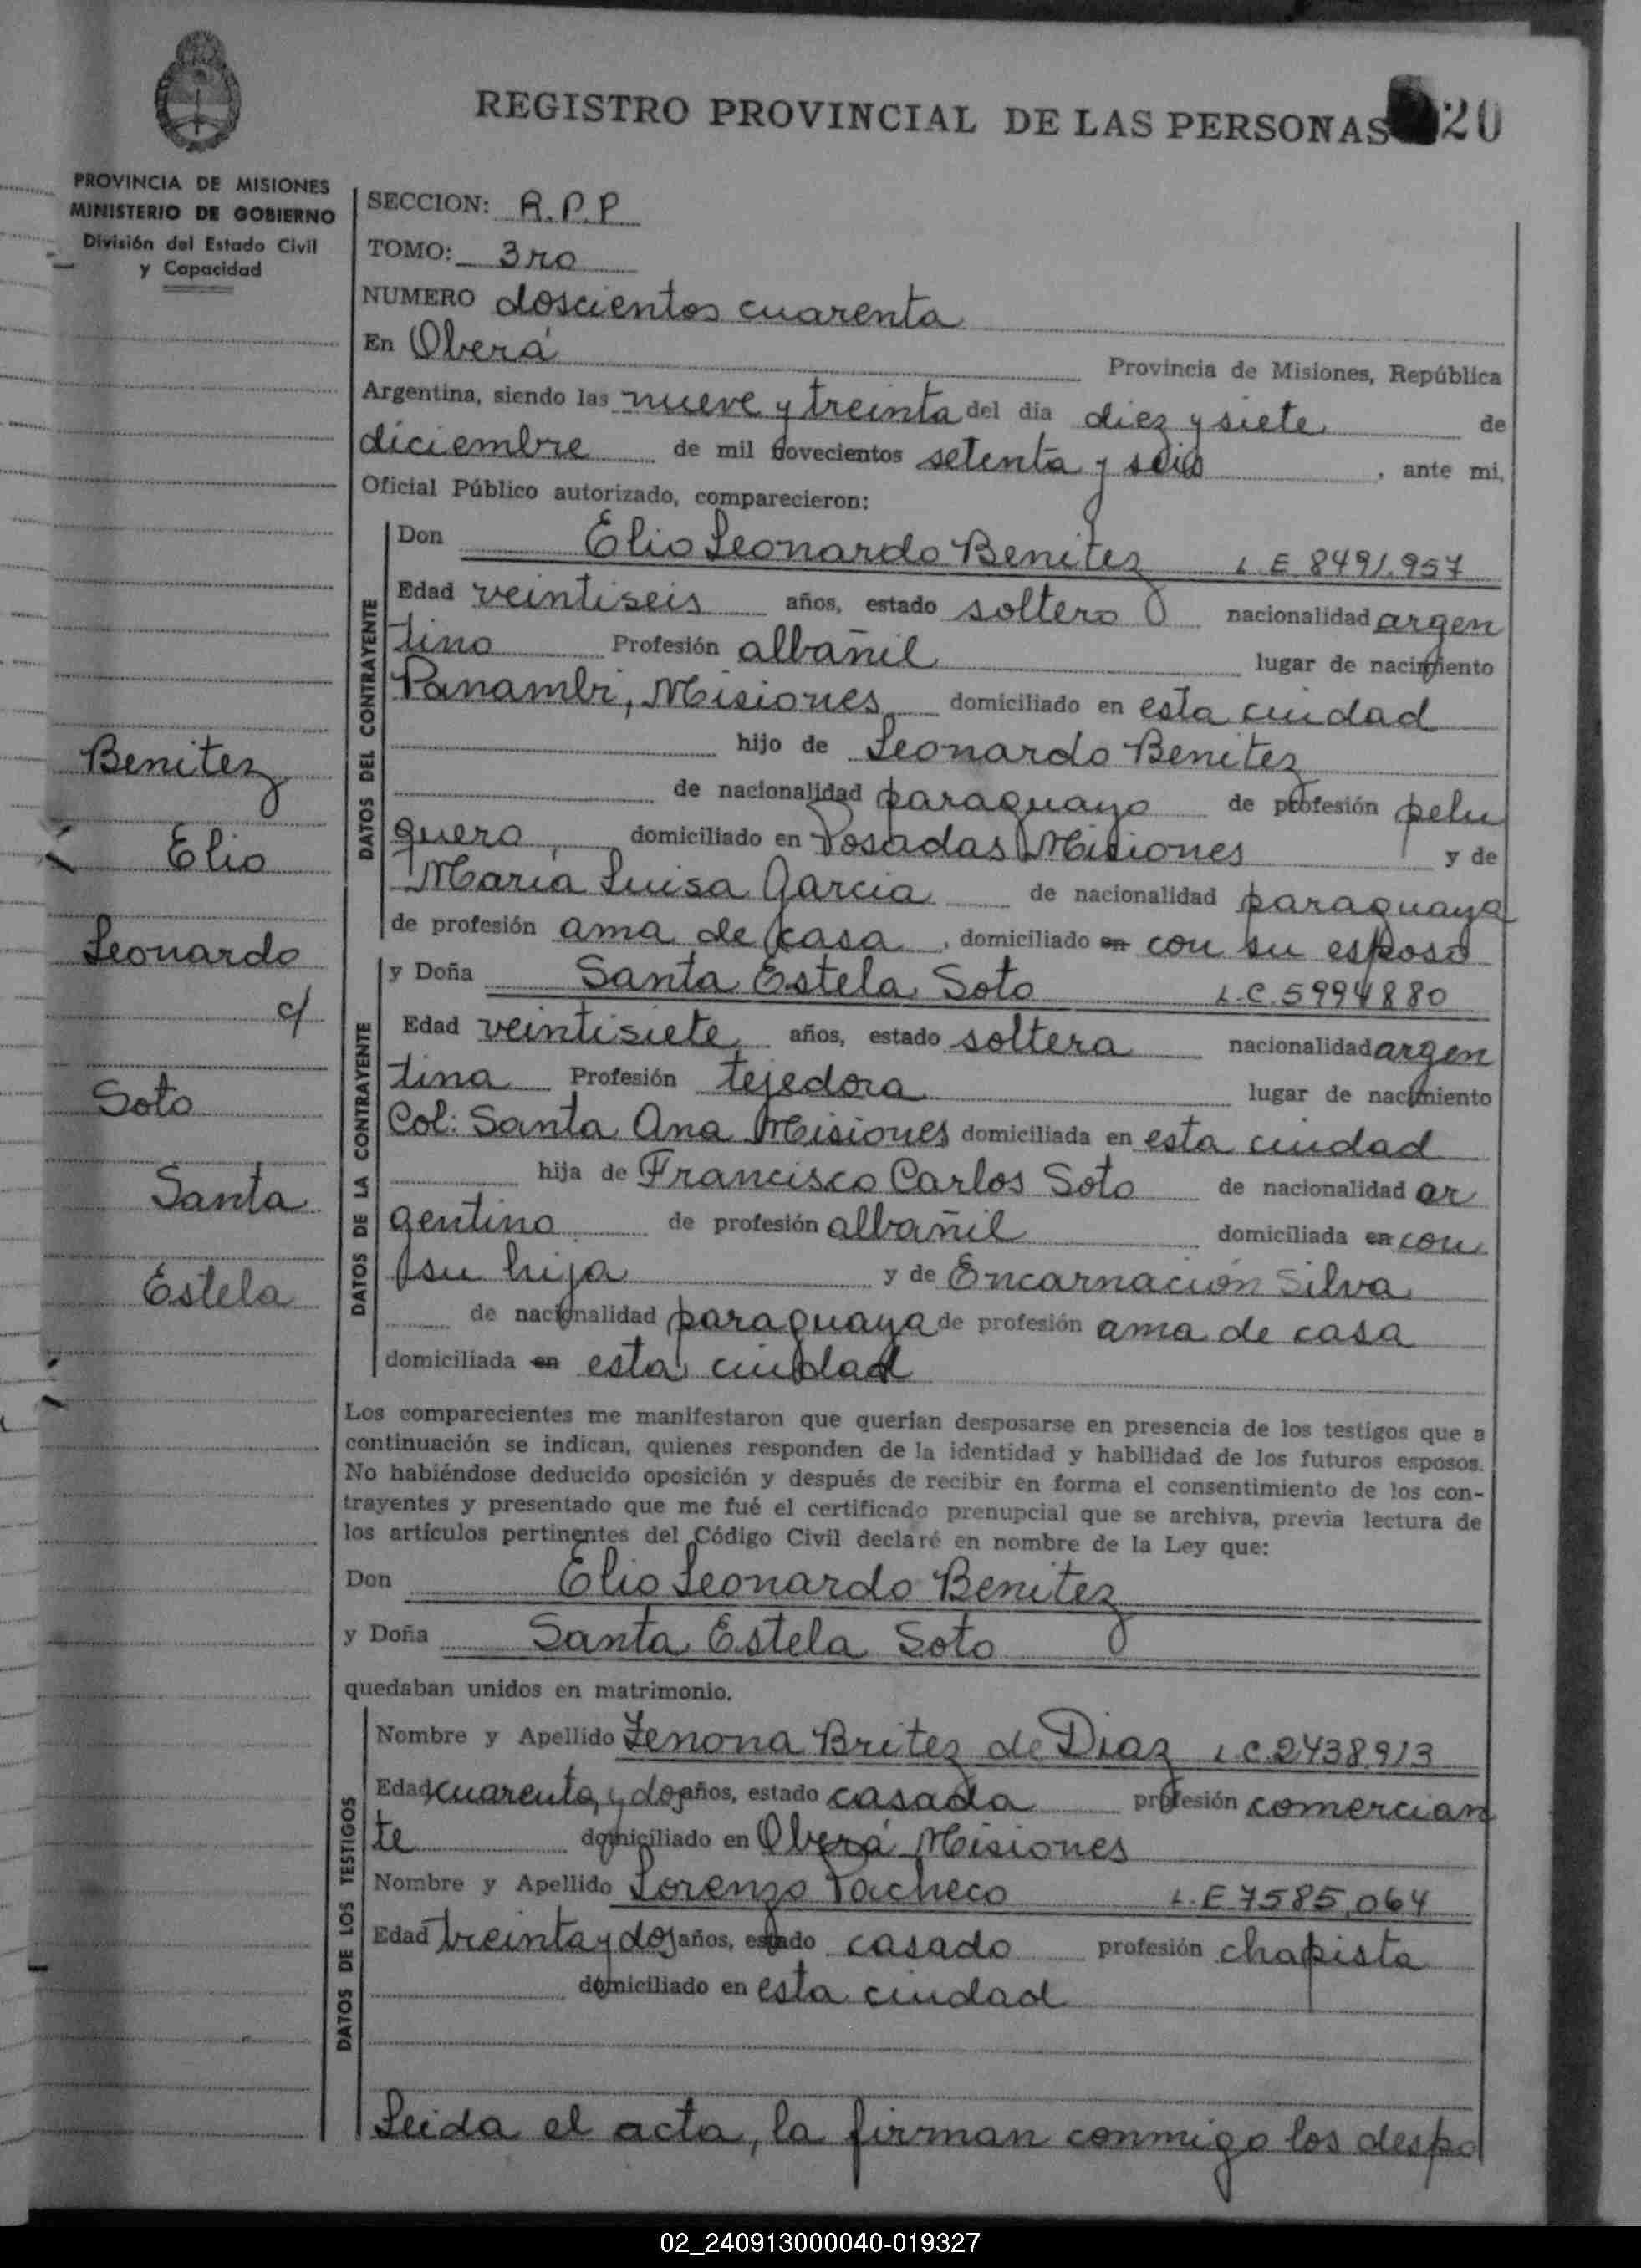 REGISTRO PROVINCIAL DE LAS PERSONAS 20
PROVINCIA DE MISIONES
MINISTERIO DE GOBIERNO
División del Estado Civil
y Capacidad
SECCION: R.P.P
TOMO: 3ro
NUMERO doscientos cuarenta
En Oberá Provincia de Misiones, República
Argentina, siendo las nueve y treinta del día diez y siete de
diciembre de mil novecientos setenta y seis, ante mi,
Oficial Público autorizado, comparecieron:
DATOS DEL CONTRAYENTE
Don Elio Leonardo Benitez L E 8491.957
Edad veintiseis años, estado soltero nacionalidad argen
tino Profesión albañil lugar de nacimiento
Panambi, Misiones domiciliado en esta ciudad
hijo de Leonardo Benitez
de nacionalidad paraguayo de profesión pelu
quero, domiciliado en Posadas Misiones y de
Maria Luisa Garcia de nacionalidad paraguaya
de profesión ama de casa, domiciliado en con su esposo
DATOS DE LA CONTRAYENTE
y Doña Santa Estela Soto L.C. 5994880
Edad veintisiete años, estado soltera nacionalidad argen
tina Profesión tejedora lugar de nacimiento
Col: Santa Ana Misiones domiciliada en esta ciudad
hija de Francisco Carlos Soto de nacionalidad ar
gentino de profesión albañil domiciliada en con
su hija y de Encarnación Silva
de nacionalidad paraguaya de profesión ama de casa
domiciliada en esta ciudad
Benitez
Elio
Leonardo
c/
Soto
Santa
Estela
Los comparecientes me manifestaron que querían desposarse en presencia de los testigos que a
continuación se indican, quienes responden de la identidad y habilidad de los futuros esposos.
No habiéndose deducido oposición y después de recibir en forma el consentimiento de los con-
trayentes y presentado que me fué el certificado prenupcial que se archiva, previa lectura de
los artículos pertinentes del Código Civil declaré en nombre de la Ley que:
Don Elio Leonardo Benitez
y Doña Santa Estela Soto
quedaban unidos en matrimonio.
DATOS DE LOS TESTIGOS
Nombre y Apellido Zenona Britez de Diaz L.C. 2438.913
Edad cuarenta y dos años, estado casada profesión comercian
te domiciliado en Oberá Misiones
Nombre y Apellido Lorenzo Pacheco L.E 7585.064
Edad treinta y dos años, estado casado profesión chapista
domiciliado en esta ciudad
Leida el acta, la firman conmigo los despo
02_240913000040-019327